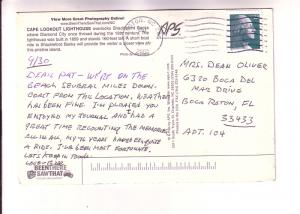 View More Great Photography Online!
CAPE LOOKOUT LIGHTHOUSE overlooks Shackleford Banks
where Diamond City once thrived during the 19th century. The
lighthouse was built in 1859 and stands 160 feet tall. A short boat
ride to Shackleford Banks will provide the visitor a closer view of
this pleasant island.
APS
9/30
DEAR PAT - WE'RE ON THE
BEACH SEVERAL MILES DOWN
COAST FROM THIS LOCATION, WEATHER
HAS BEEN FINE. I'M PLEASED YOU
ENJOYED MY JOURNAL AND I HAD A
GREAT TIME RECOUNTING THE MEMORIES
ALL IN ALL, MY 75 YEARS HAVE BEEN QUITE
A RIDE. I'VE BEEN MOST FORTUNATE.
LET'S KEEP IN TOUCH
LOVE
MRS. DEAN OLIVER
6320 BOCA DEL
MAR DRIVE
BOCA RATON, FL
33433
APT. 104
BEENTHERE
SAWTHAT